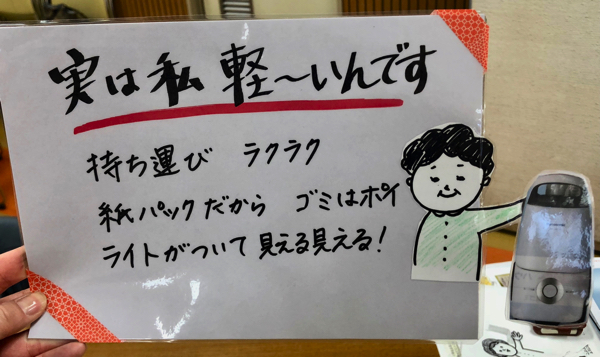 実は私 軽〜いんです
持ち運び ラクラク
紙パックだから ゴミはポイ
ライトがついて見える見える!